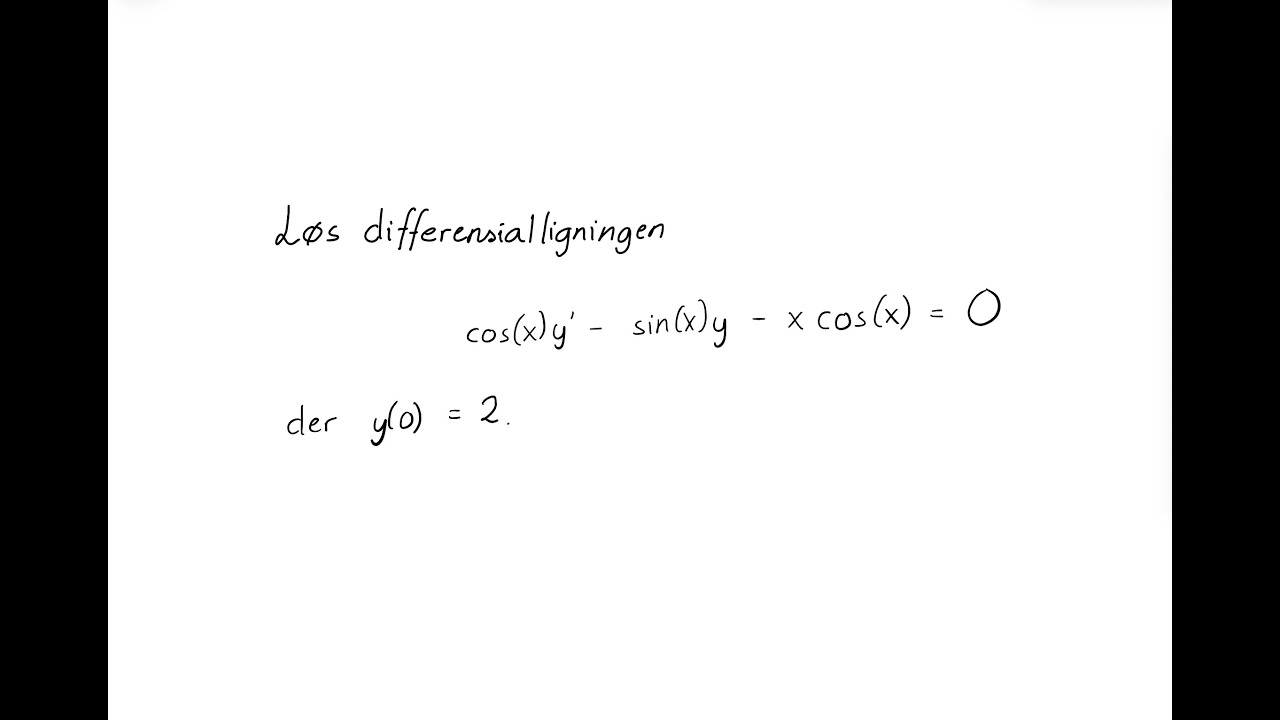 Løs differensialligningen
cos(x)y' - sin(x)y - x cos(x) = 0
der y(0) = 2.